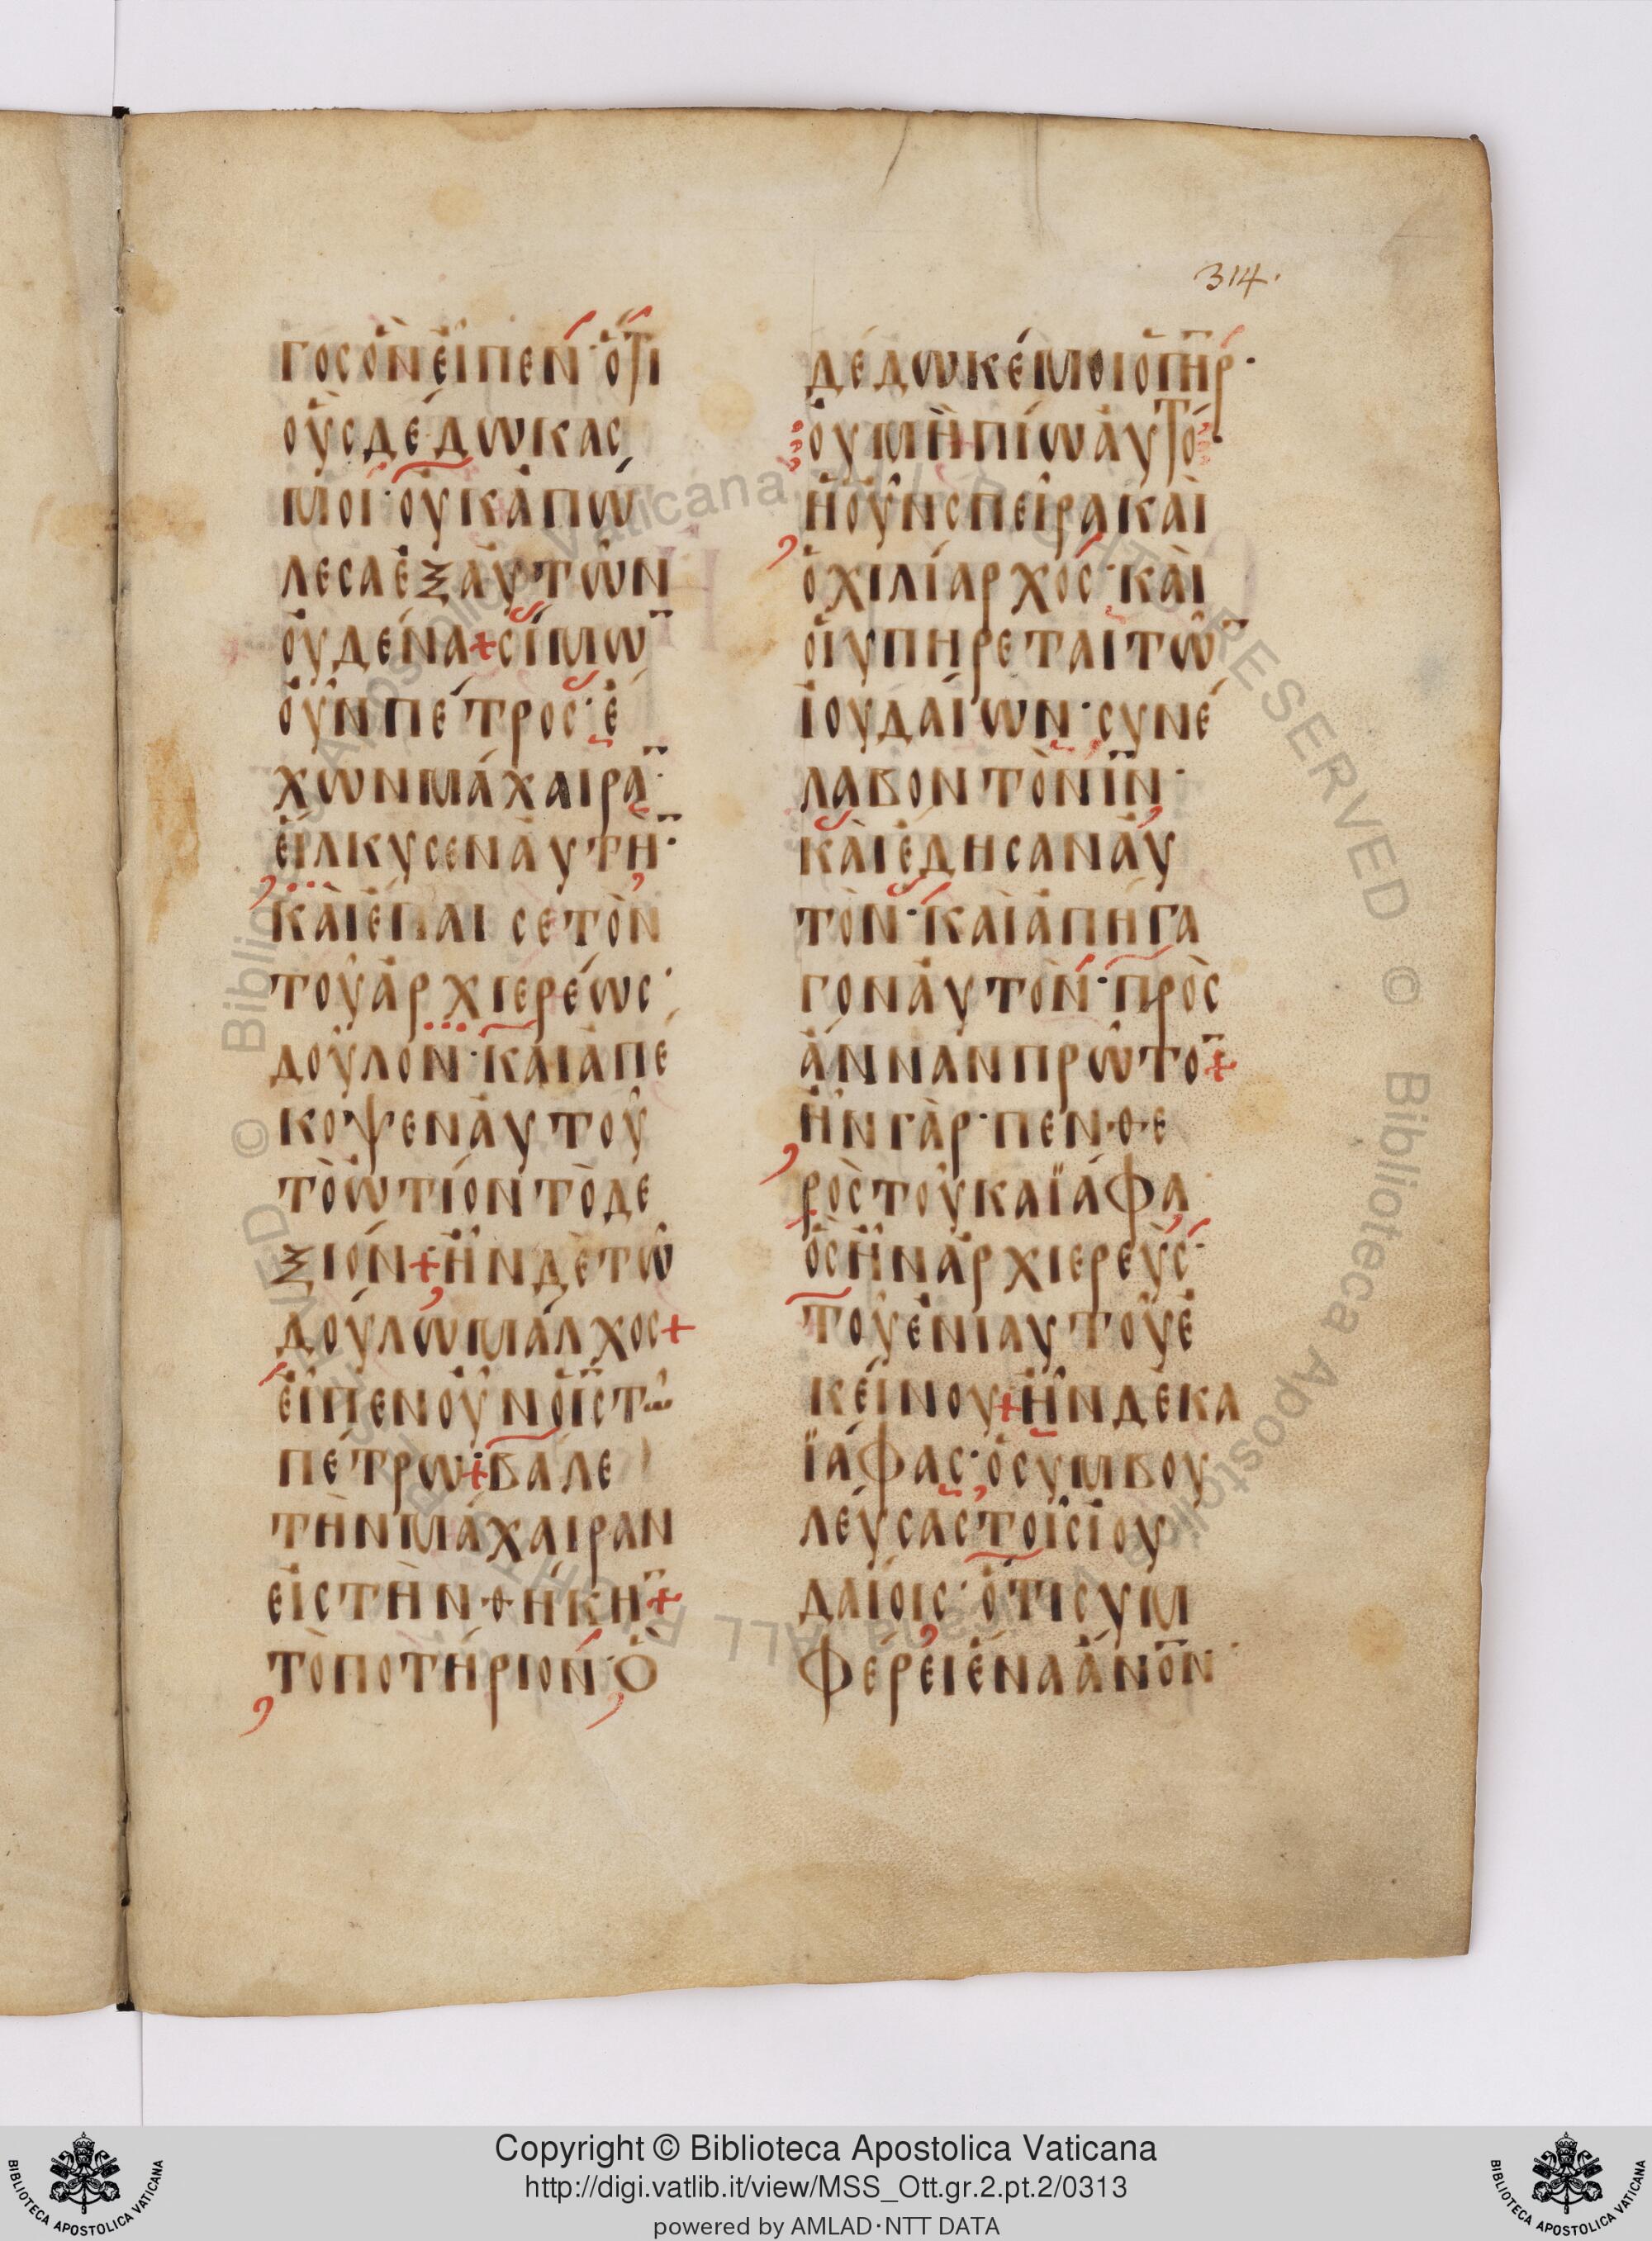 314.
ΓΟCὋΝἘΙΠΕΝ·ὍΤΙ
ΟὝCΔΕΔΩΚΑC
ΜΟΙ·ΟΥΚΑΠΩ
ΛΕCΑΕΞΑΥΤΩΝ
ΟΥΔΕΝΑ+CΙΜΩ̅
ΟΥΝΠΕΤΡΟC·Ε
ΧΩΝΜΑΧΑΙΡΑ̅·
ΕΙΛΚΥCΕΝΑΥΤΗ̅·
ΚΑΙΕΠΑΙCΕΤΟΝ
ΤΟΥΑΡΧΙΕΡΕΩC·
ΔΟΥΛΟΝ·ΚΑΙΑΠΕ
ΚΟΨΕΝΑΥΤΟΥ
ΤΟΩΤΙΟΝΤΟΔΕ
ΞΙΟΝ+ΗΝΔΕΤΩ
ΔΟΥΛΩΜΑΛΧΟC+
ΕΙΠΕΝΟΥΝΟΙ̅C̅ΤΩ
ΠΕΤΡΩ+ΒΑΛΕ
ΤΗΝΜΑΧΑΙΡΑΝ
ΕΙCΤΗΝΘΗΚΗ̅+
ΤΟΠΟΤΗΡΙΟΝ·Ο
ΔΕΔΩΚΕΜΟΙΟΠ̅Η̅Ρ̅·
ΟΥΜΗΠΙΩΑΥΤΟ·
ΗΟΥΝCΠΕΙΡΑΚΑΙ
ΟΧΙΛΙΑΡΧΟC·ΚΑΙ
ΟΙΥΠΗΡΕΤΑΙΤΩ̅
ΙΟΥΔΑΙΩΝ·CΥΝΕ
ΛΑΒΟΝΤΟΝΙ̅Ν̅·
ΚΑΙΕΔΗCΑΝΑΥ
ΤΟΝ·ΚΑΙΑΠΗΓΑ
ΓΟΝΑΥΤΟΝ·ΠΡΟC
ΑΝΝΑΝΠΡΩΤΟ̅+
ΗΝΓΑΡ·ΠΕΝΘΕ
ΡΟCΤΟΥΚΑΪΑΦΑ
ΟCΗΝΑΡΧΙΕΡΕΥC·
ΤΟΥΕΝΙΑΥΤΟΥΕ
ΚΕΙΝΟΥ+ΗΝΔΕΚΑ
ΪΑΦΑC·ΟCΥΜΒΟΥ
ΛΕΥCΑCΤΟΙCΙΟΥ
ΔΑΙΟΙC·ΟΤΙCΥΜ
ΦΕΡΕΙΕΝΑΑ̅Ν̅Ο̅Ν̅
© Biblioteca Apostolica Vaticana ALL RIGHTS RESERVED
Copyright © Biblioteca Apostolica Vaticana
http://digi.vatlib.it/view/MSS_Ott.gr.2.pt.2/0313
powered by AMLAD·NTT DATA
BIBLIOTECA APOSTOLICA VATICANA
BIBLIOTECA APOSTOLICA VATICANA